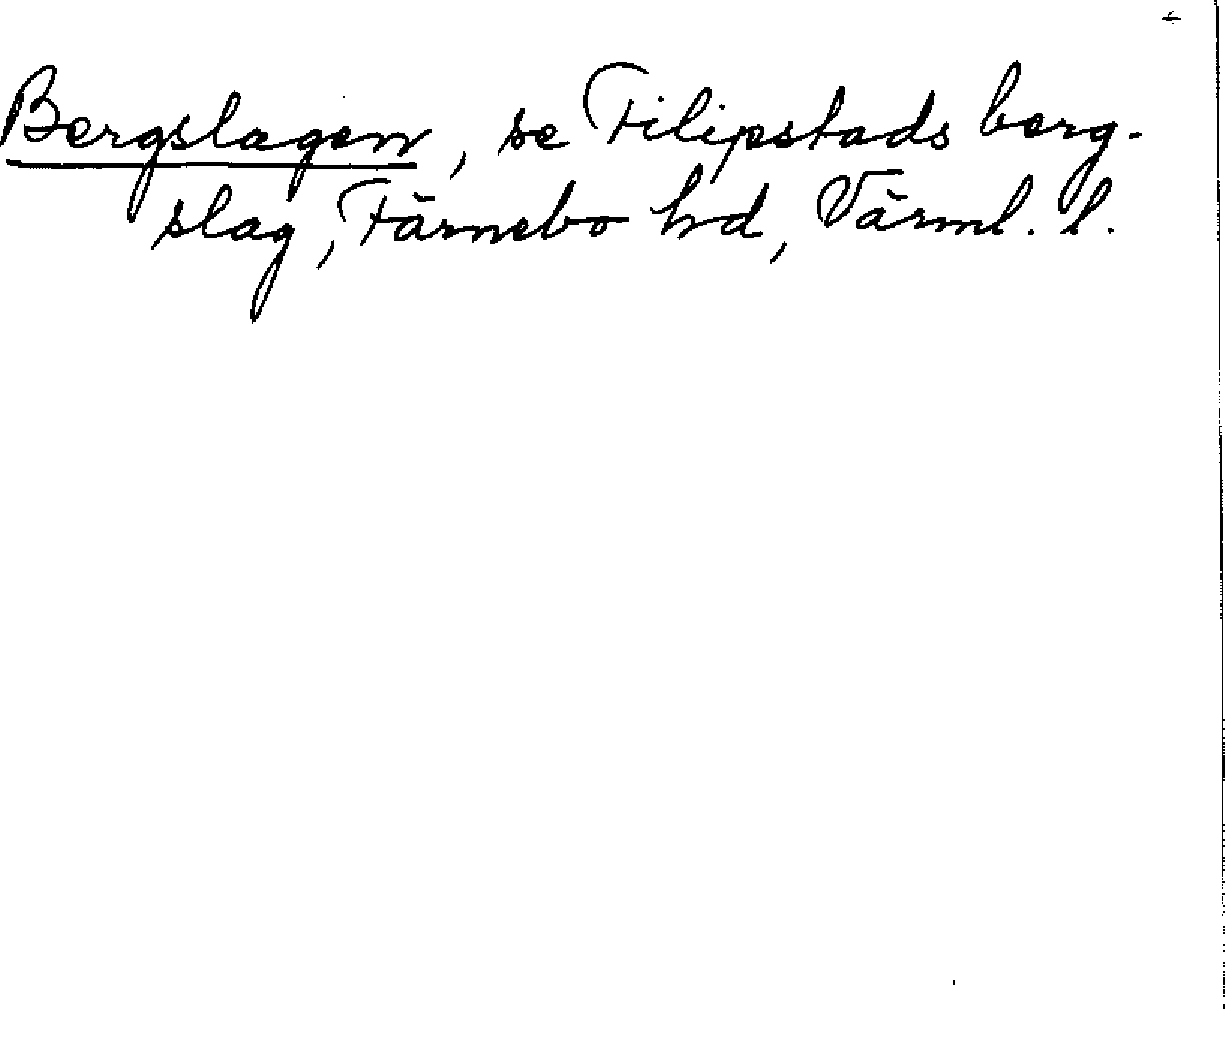 Bergslagen, se Filipstads berg-
slag, Färnebo hd, Värml. l.